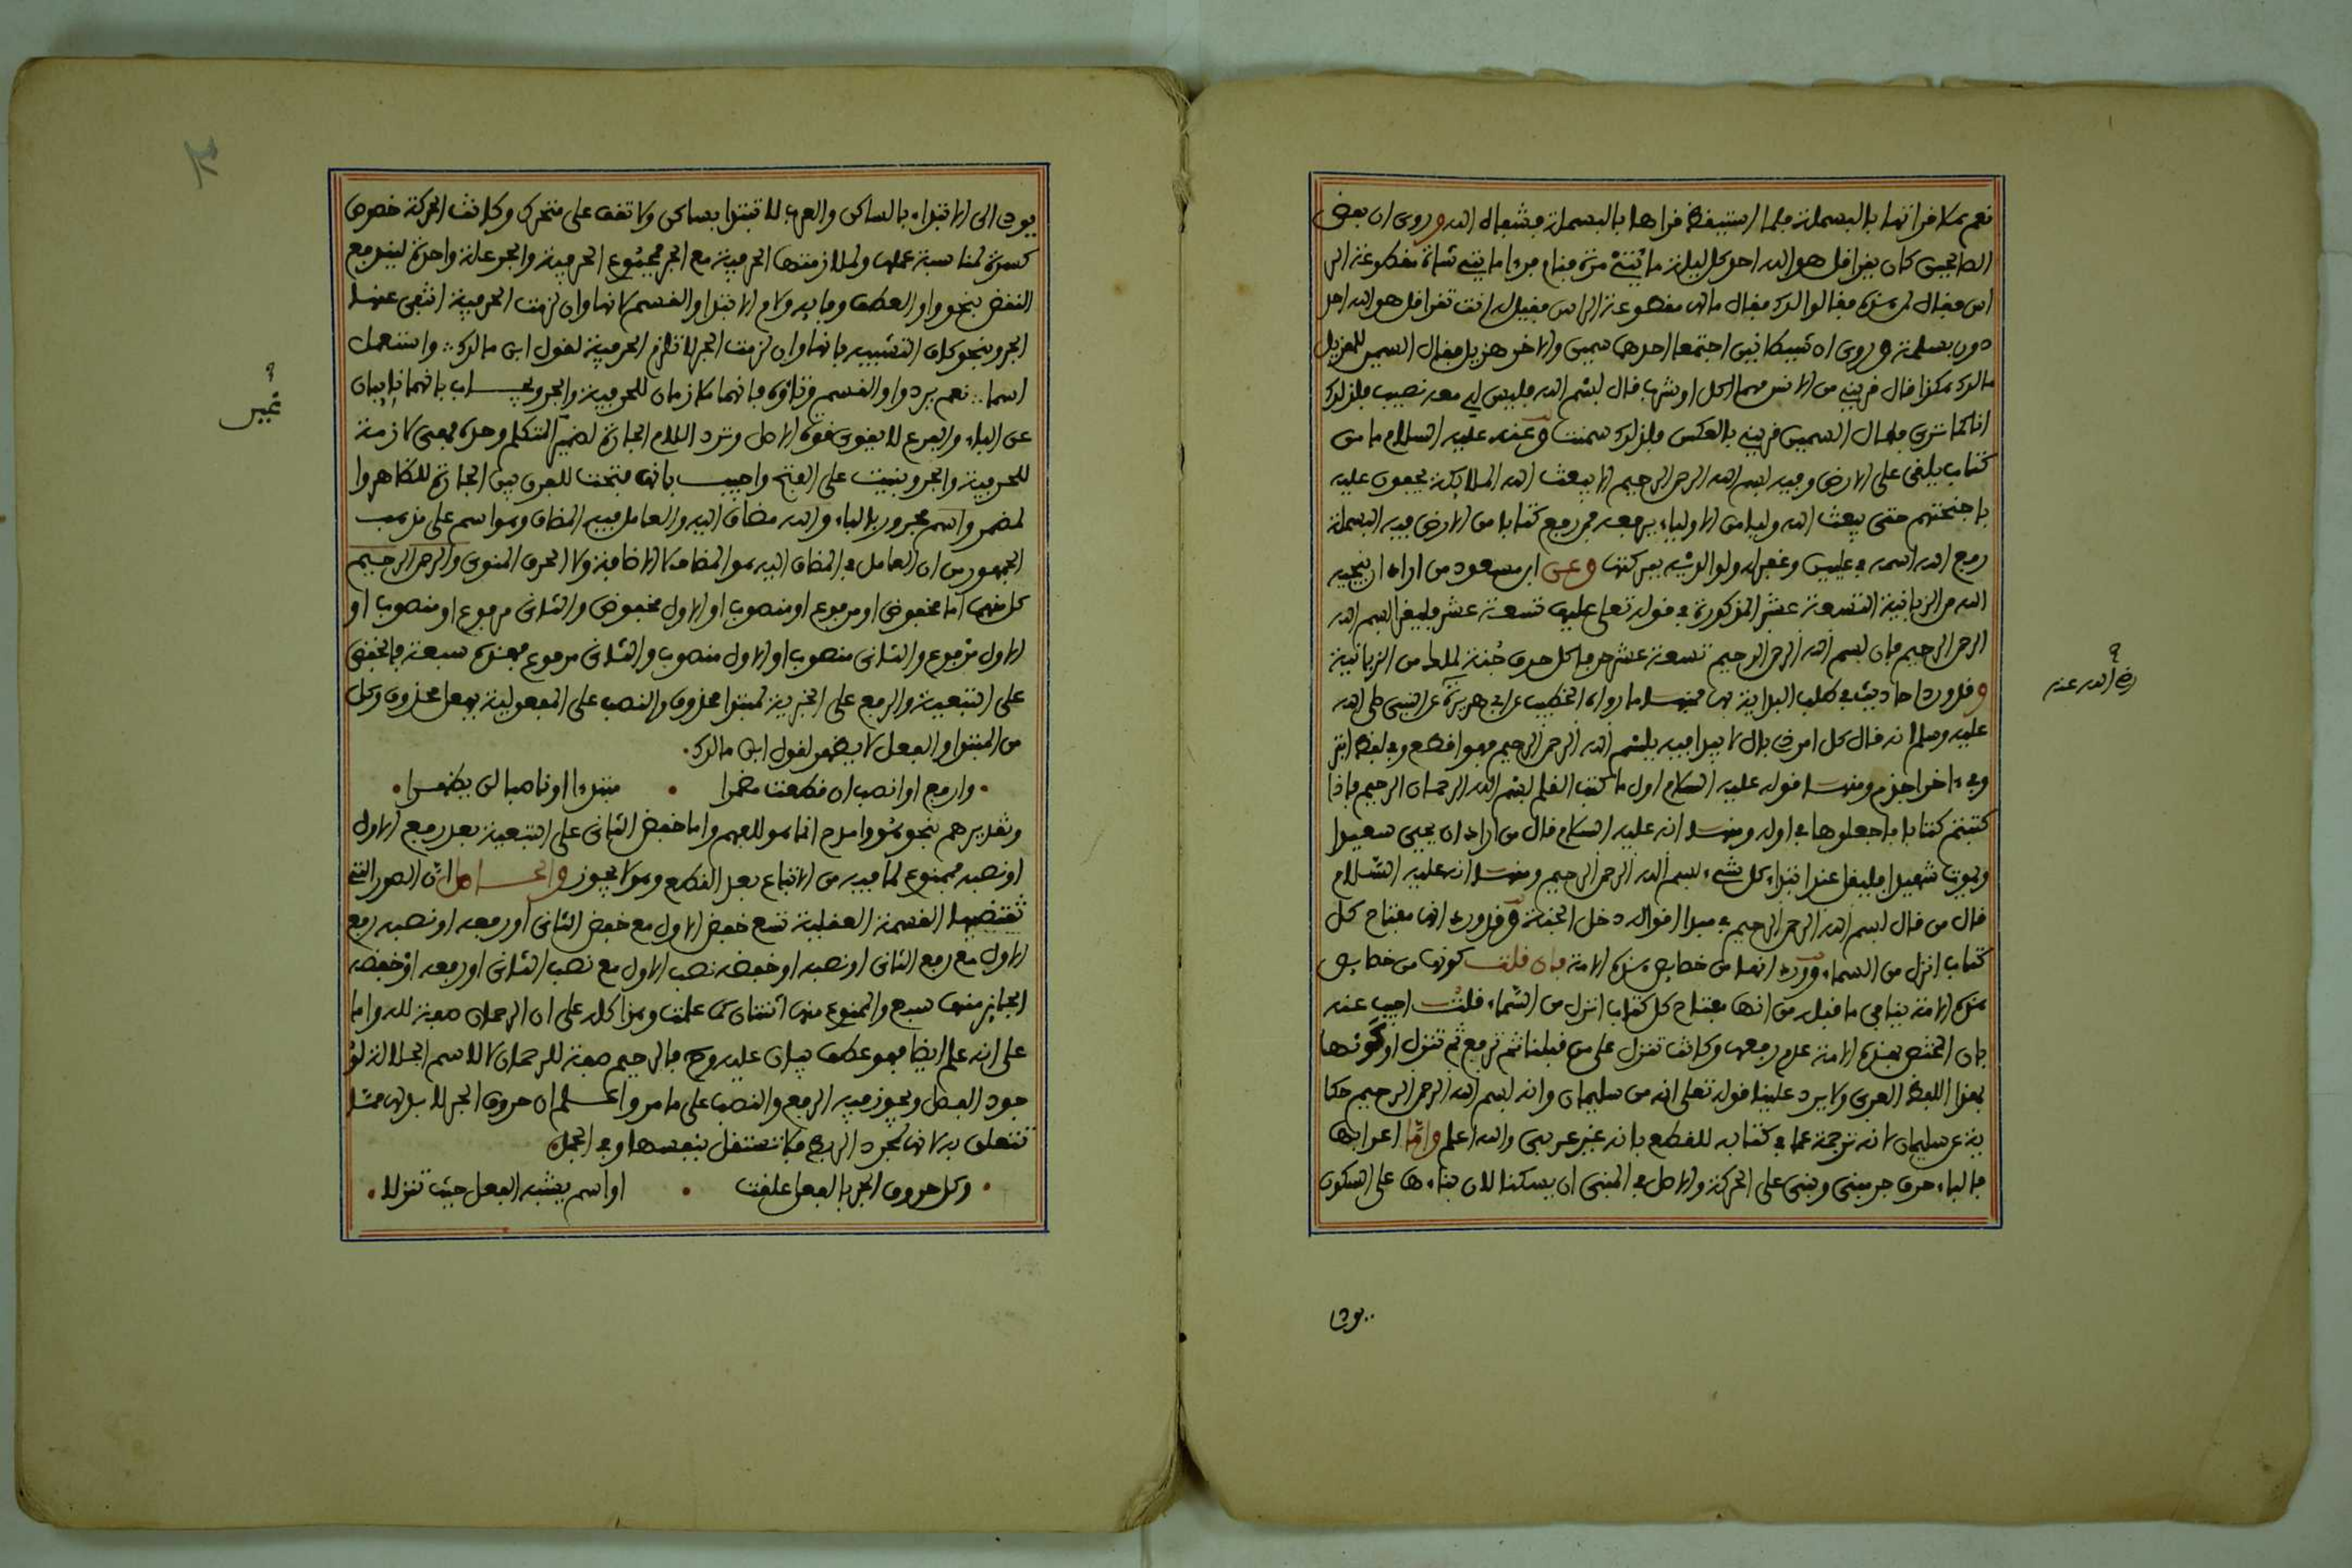 نعم بلا قراتها بالبسملة فلما استيقظ قراها بالبسملة فشفاه الله وروى ان بعض
الصالحين كان يقرا قل هو الله احد كل ليلة مائتي مرة فنام فرءا مائتي شاة مقطوعة الر
اس فقال لمن هذه فقالوا لك فقال ما لها مقطوعة الراس فقيل له انت تقرا قل هو الله احد
دون بسملة وروى ان شيطانين اجتمعا احدهما سمين والاخر هزيل فقال السمين للهزيل
مالك هكذا قال قريني من الانس مهما اكل او شرب قال بسم الله فليس لي معه نصيب فلذلك
انا كما ترى فقال السمين قريني بالعكس فلذلك سمنت وعنه عليه السلام ما من
كتاب يلقى على الارض وفيه بسم الله الرحمن الرحيم الا يبعث الله الملايكة يحفون عليه
باجنحتهم حتى يبعث الله وليا من الاولياء يرفعه فمن رفع كتابا من الارض فيه البسملة
رفع الله اسمه في عليين وغفر له ولوالديه ببركتها وعن ابن مسعود من اراد ان ينجيه
الله من الزبانية التسعة عشر المذكورة في قوله تعلى عليها تسعة عشر فليقرا بسم الله
الرحمن الرحيم فان بسم الله الرحمن الرحيم تسعة عشر حرفا كل حرف جنة لملك من الزبانية
وقد ورد احاديث في طلب البداية بها فمنها ما رواه الخطيب عن ابي هريرة عن النبي صلى الله
عليه وسلم انه قال كل امر ذي بال لا يبدا فيه ببسم الله الرحمن الرحيم فهو اقطع وفي لفظ ابتر
وفي ءاخر اجذم ومنها قوله عليه السلام اول ما كتب القلم بسم الله الرحمان الرحيم فاذا
كتبتم كتابا فاجعلوها في اوله ومنها انه عليه السلام قال من اراد ان يحيى سعيدا
ويموت شهيدا فليقل عند ابتداء كل شيء بسم الله الرحمن الرحيم ومنها انه عليه السلام
قال من قال بسم الله الرحمن الرحيم في مبدا اقواله دخل الجنة وقد ورد انها مفتاح كل
كتاب انزل من السماء وورد انها من خصايص هذه الامة فان قلت كونها من خصايص
هذه الامة ينافي ما قبله من انها مفتاح كل كتاب انزل من السماء قلت اجيب عنه
بان المختص بهذه الامة عدم رفعها وكانت تنزل على من قبلنا ثم ترفع ثم تنزل او كونها
بهذا اللفظ العربي ولا يرد علينا قوله تعلى انه من سليمان وانه بسم الله الرحمن الرحيم حكا
ية عن سليمان لانه ترجمة عما في كتابه للقطع بانه غير عربي والله اعلم واما اعرابها
فالباء حرف جر مبني وبني على الحركة والاصل في المبني ان يسكنا لان بناءها على السكون
يودي
رضي الله عنه
يودي الى الابتداء بالساكن والعرب لا تبتدا بساكن ولا تقف على متحرك وكانت الحركة خصوص
كسرة لمناسبة عملها ولملازمتها الحرفية مع الجر فمجموع الحرفية والجر علة واحدة ليندفع
النقض بنحو واو العطف وفايه ولام الابتدا والقسم لانها وان لزمت الحرفية انتفى عنها
الجر وبنحو كاف التشبيه فانها وان لزمت الجر لا تلزم الحرفية لقول ابن مالك ∴ واستعمل
اسما ∴ نعم يرد واو القسم وتاؤه فانهما ملازمان للحرفية والجر ويجاب بانهما نايبان
عن الباء والفرع لا يقوى قوة الاصل وترد اللام الجارة لضمير المتكلم وحده فهي لازمة
للحرفية والجر وبنيت على الفتح واجيب بانها فتحت للفرق بين الجارة للظاهر وا
لمضمر واسم مجرور بالباء والله مضاف اليه والعامل فيه المضاف وهو اسم على مذهب
الجمهور من ان العامل في المضاف اليه هو المضاف لا الاضافة ولا الحرف المنوي والرحمن الرحيم
كل منهما اما مخفوض او مرفوع او منصوب او الاول مخفوض والثاني مرفوع او منصوب او
الاول مرفوع والثاني منصوب او الاول منصوب والثاني مرفوع فهذه سبعة فالخفض
على التبعية والرفع على الخبرية لمبتدا محذوف والنصب على المفعولية بفعل محذوف وكل
من المبتدا والفعل لا يظهر لقول ابن مالك
وارفع او انصب ان قطعت مضمرا • مبتدءا او ناصبا لن يظهرا
وتقديرهم بنحو هو وامدح انما هو للفهم واما خفض الثاني على التبعية بعد رفع الاول
او نصبه فممنوع لما فيه من الاتباع بعد القطع وهو لا يجوز والحاصل ان الصور التي
تقتضيها القسمة العقلية تسع خفض الاول مع خفض الثاني او رفعه او نصبه رفع
الاول مع رفع الثاني او نصبه او خفضه نصب الاول مع نصب الثاني او رفعه او خفضه
الجايز منها سبع والممنوع منها اثنتان كما علمت وهذا كله على ان الرحمان صفة لله واما
على انه علم ايضا فهو عطف بيان عليه وح فالرحيم صفة للرحمان لا لاسم الجلالة لو
جود الفصل ويجوز فيه الرفع والنصب على ما مر واعلم ان حروف الجر لا بد لها مما
تتعلق به لانها لمجرد الربط فلا تستقل بنفسها وفي المجمل
وكل حروف الجر بالفعل علقت • او اسم يشبه الفعل حيث تنزلا
ضمير